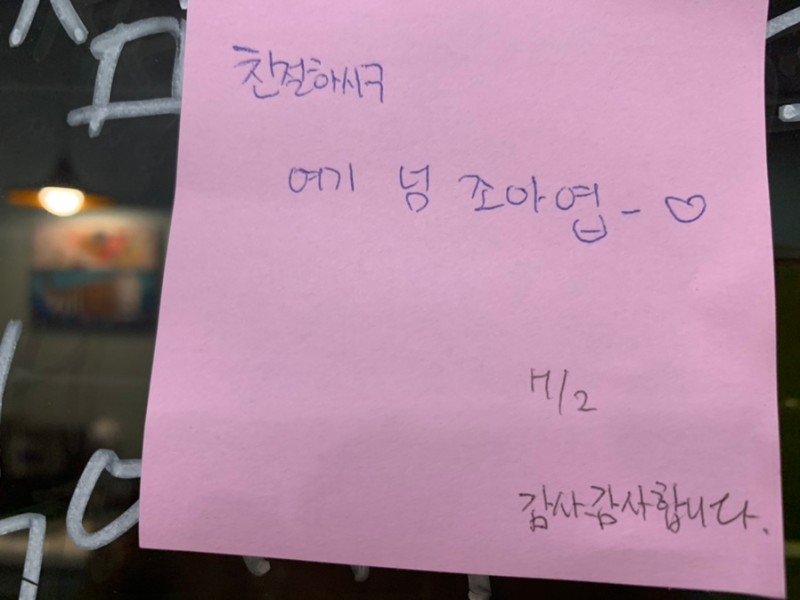 친절하시구
여기 넘 조아엽- ♡
11/2
감사감사합니다.